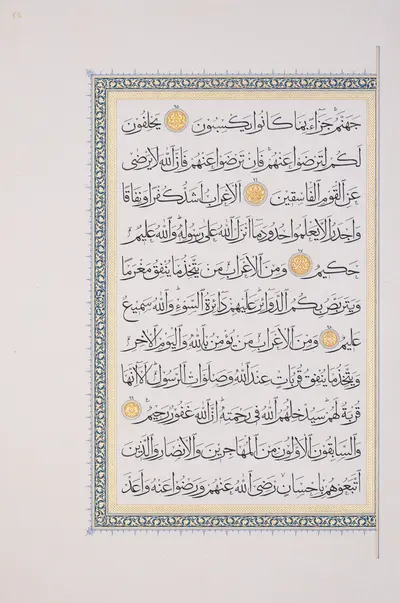 جَهَنَّمُ جَزَاءً بِمَا كَانُوا يَكْسِبُونَ ٩٥ يَحْلِفُونَ
لَكُمْ لِتَرْضَوْا عَنْهُمْ فَإِنْ تَرْضَوْا عَنْهُمْ فَإِنَّ اللّٰهَ لَا يَرْضٰى
عَنِ الْقَوْمِ الْفَاسِقِينَ ٩٦ اَلْأَعْرَابُ أَشَدُّ كُفْرًا وَنِفَاقًا
وَأَجْدَرُ أَلَّا يَعْلَمُوا حُدُودَ مَا أَنْزَلَ اللّٰهُ عَلٰى رَسُولِهِ وَاللّٰهُ عَلِيمٌ
حَكِيمٌ ٩٧ وَمِنَ الْأَعْرَابِ مَنْ يَتَّخِذُ مَا يُنْفِقُ مَغْرَمًا
وَيَتَرَبَّصُ بِكُمُ الدَّوَائِرَ عَلَيْهِمْ دَائِرَةُ السَّوْءِ وَاللّٰهُ سَمِيعٌ
عَلِيمٌ ٩٨ وَمِنَ الْأَعْرَابِ مَنْ يُؤْمِنُ بِاللّٰهِ وَالْيَوْمِ الْآخِرِ
وَيَتَّخِذُ مَا يُنْفِقُ قُرُبَاتٍ عِنْدَ اللّٰهِ وَصَلَوَاتِ الرَّسُولِ أَلَا إِنَّهَا
قُرْبَةٌ لَهُمْ سَيُدْخِلُهُمُ اللّٰهُ فِي رَحْمَتِهِ إِنَّ اللّٰهَ غَفُورٌ رَحِيمٌ ٩٩
وَالسَّابِقُونَ الْأَوَّلُونَ مِنَ الْمُهَاجِرِينَ وَالْأَنْصَارِ وَالَّذِينَ
اتَّبَعُوهُمْ بِإِحْسَانٍ رَضِيَ اللّٰهُ عَنْهُمْ وَرَضُوا عَنْهُ وَأَعَدَّ